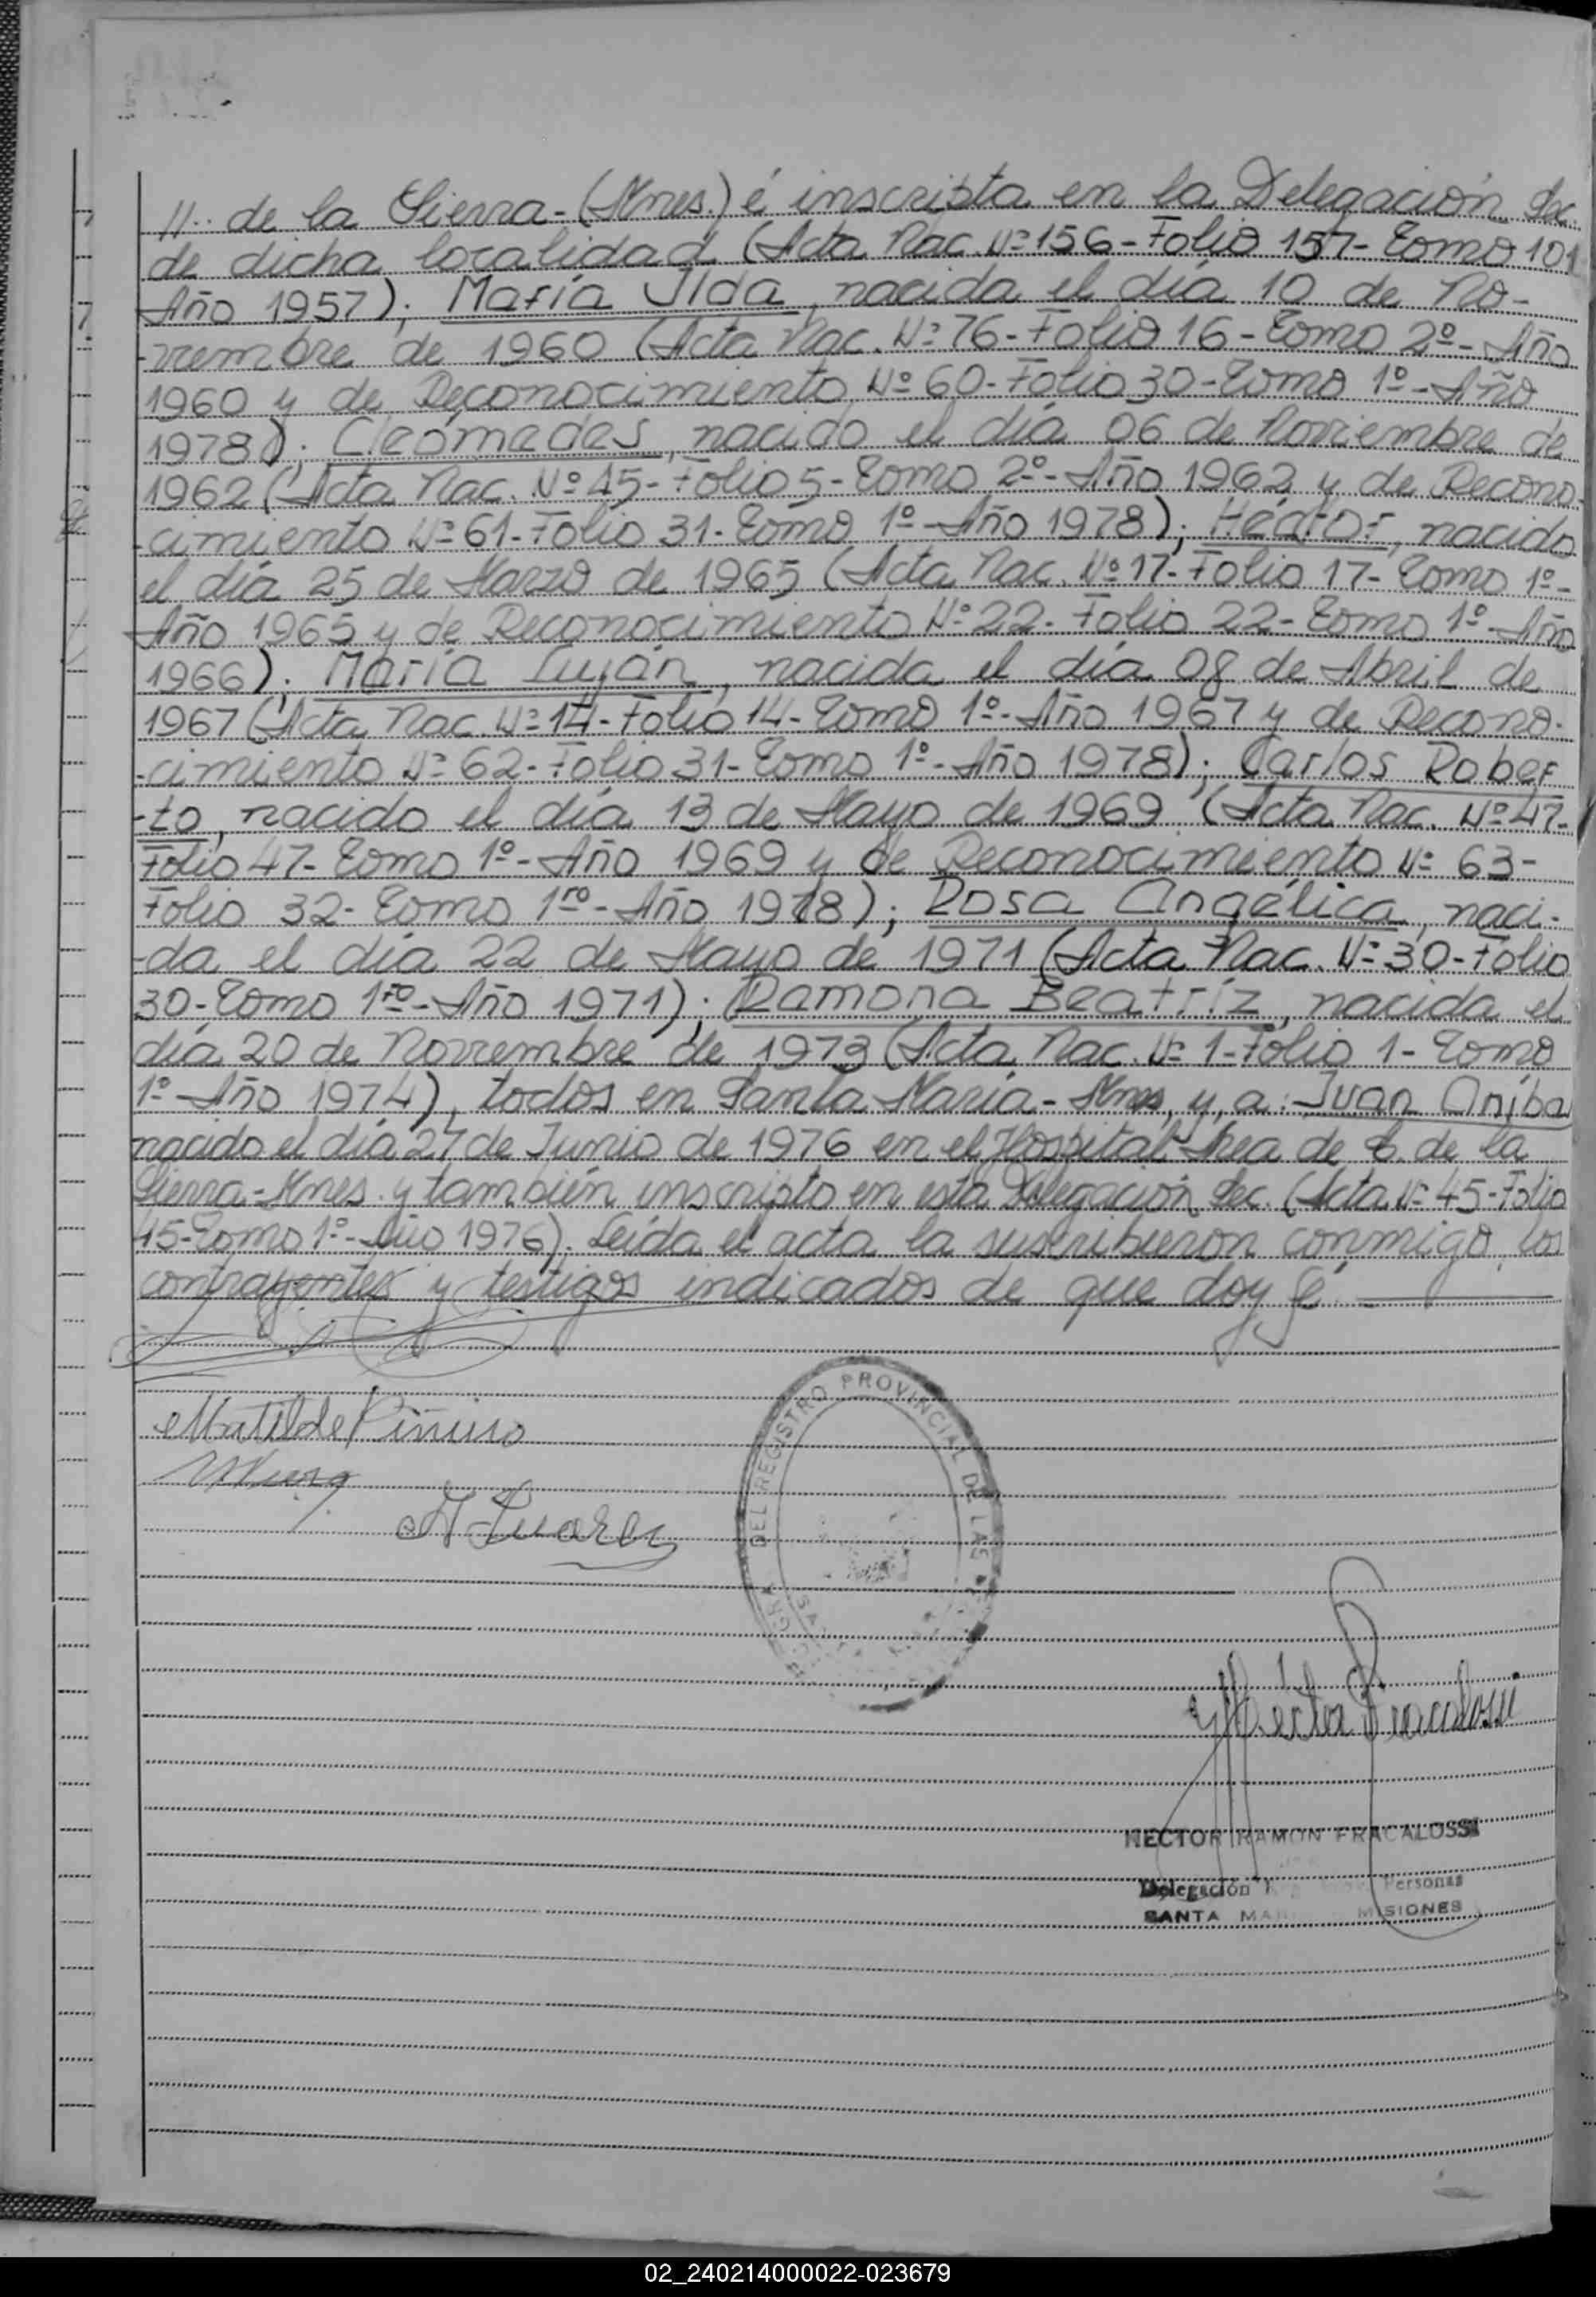 //.. de la Sierra-(Mnes.) é inscripta en la Delegación Sec.
de dicha localidad (Acta Nac. Nº 156-Folio 157-Tomo 101
Año 1957); María Ilda, nacida el día 10 de No-
-viembre de 1960 (Acta Nac. Nº 76-Folio 16-Tomo 2º-Año
1960 y de Reconocimiento Nº 60-Folio 30-Tomo 1º-Año
1978); Cleómedes, nacido el día 06 de Noviembre de
1962 (Acta Nac. Nº 45-Folio 5-Tomo 2º-Año 1962 y de Recono-
-cimiento Nº 61-Folio 31-Tomo 1º-Año 1978); Héctor, nacido
el día 25 de Marzo de 1965 (Acta Nac. Nº 17-Folio 17-Tomo 1º-
Año 1965 y de Reconocimiento Nº 22-Folio 22-Tomo 1º-Año
1966); María Luján, nacida el día 08 de Abril de
1967 (Acta Nac. Nº 14-Folio 14-Tomo 1º-Año 1967 y de Recono-
-cimiento Nº 62-Folio 31-Tomo 1º-Año 1978); Carlos Rober
-to, nacido el día 13 de Mayo de 1969 (Acta Nac. Nº 47-
Folio 47-Tomo 1º-Año 1969 y de Reconocimiento Nº 63-
Folio 32-Tomo 1ro-Año 1978); Rosa Angélica, naci-
-da el día 22 de Mayo de 1971 (Acta Nac. Nº 30-Folio
30-Tomo 1ro-Año 1971); Ramona Beatríz, nacida el
día 20 de Noviembre de 1973 (Acta Nac. Nº 1-Folio 1-Tomo
1º-Año 1974), todos en Santa María-Mnes, y, a: Juan Aníbal
nacido el día 27 de Junio de 1976 en el Hospital Area de C. de la
Sierra-Mnes. y también inscripto en esta Delegación Sec. (Acta Nº 45-Folio
45-Tomo 1º-Año 1976). Leída el acta la suscribieron conmigo, los
contrayentes y testigos indicados de que doy fé
Matilde Piñiro
A Suarez
DEL REGISTRO PROVINCIAL DE LAS
Héctor Fracalossi
HECTOR RAMON FRACALOSSI
Delegación Personas
SANTA MISIONES
02_240214000022-023679